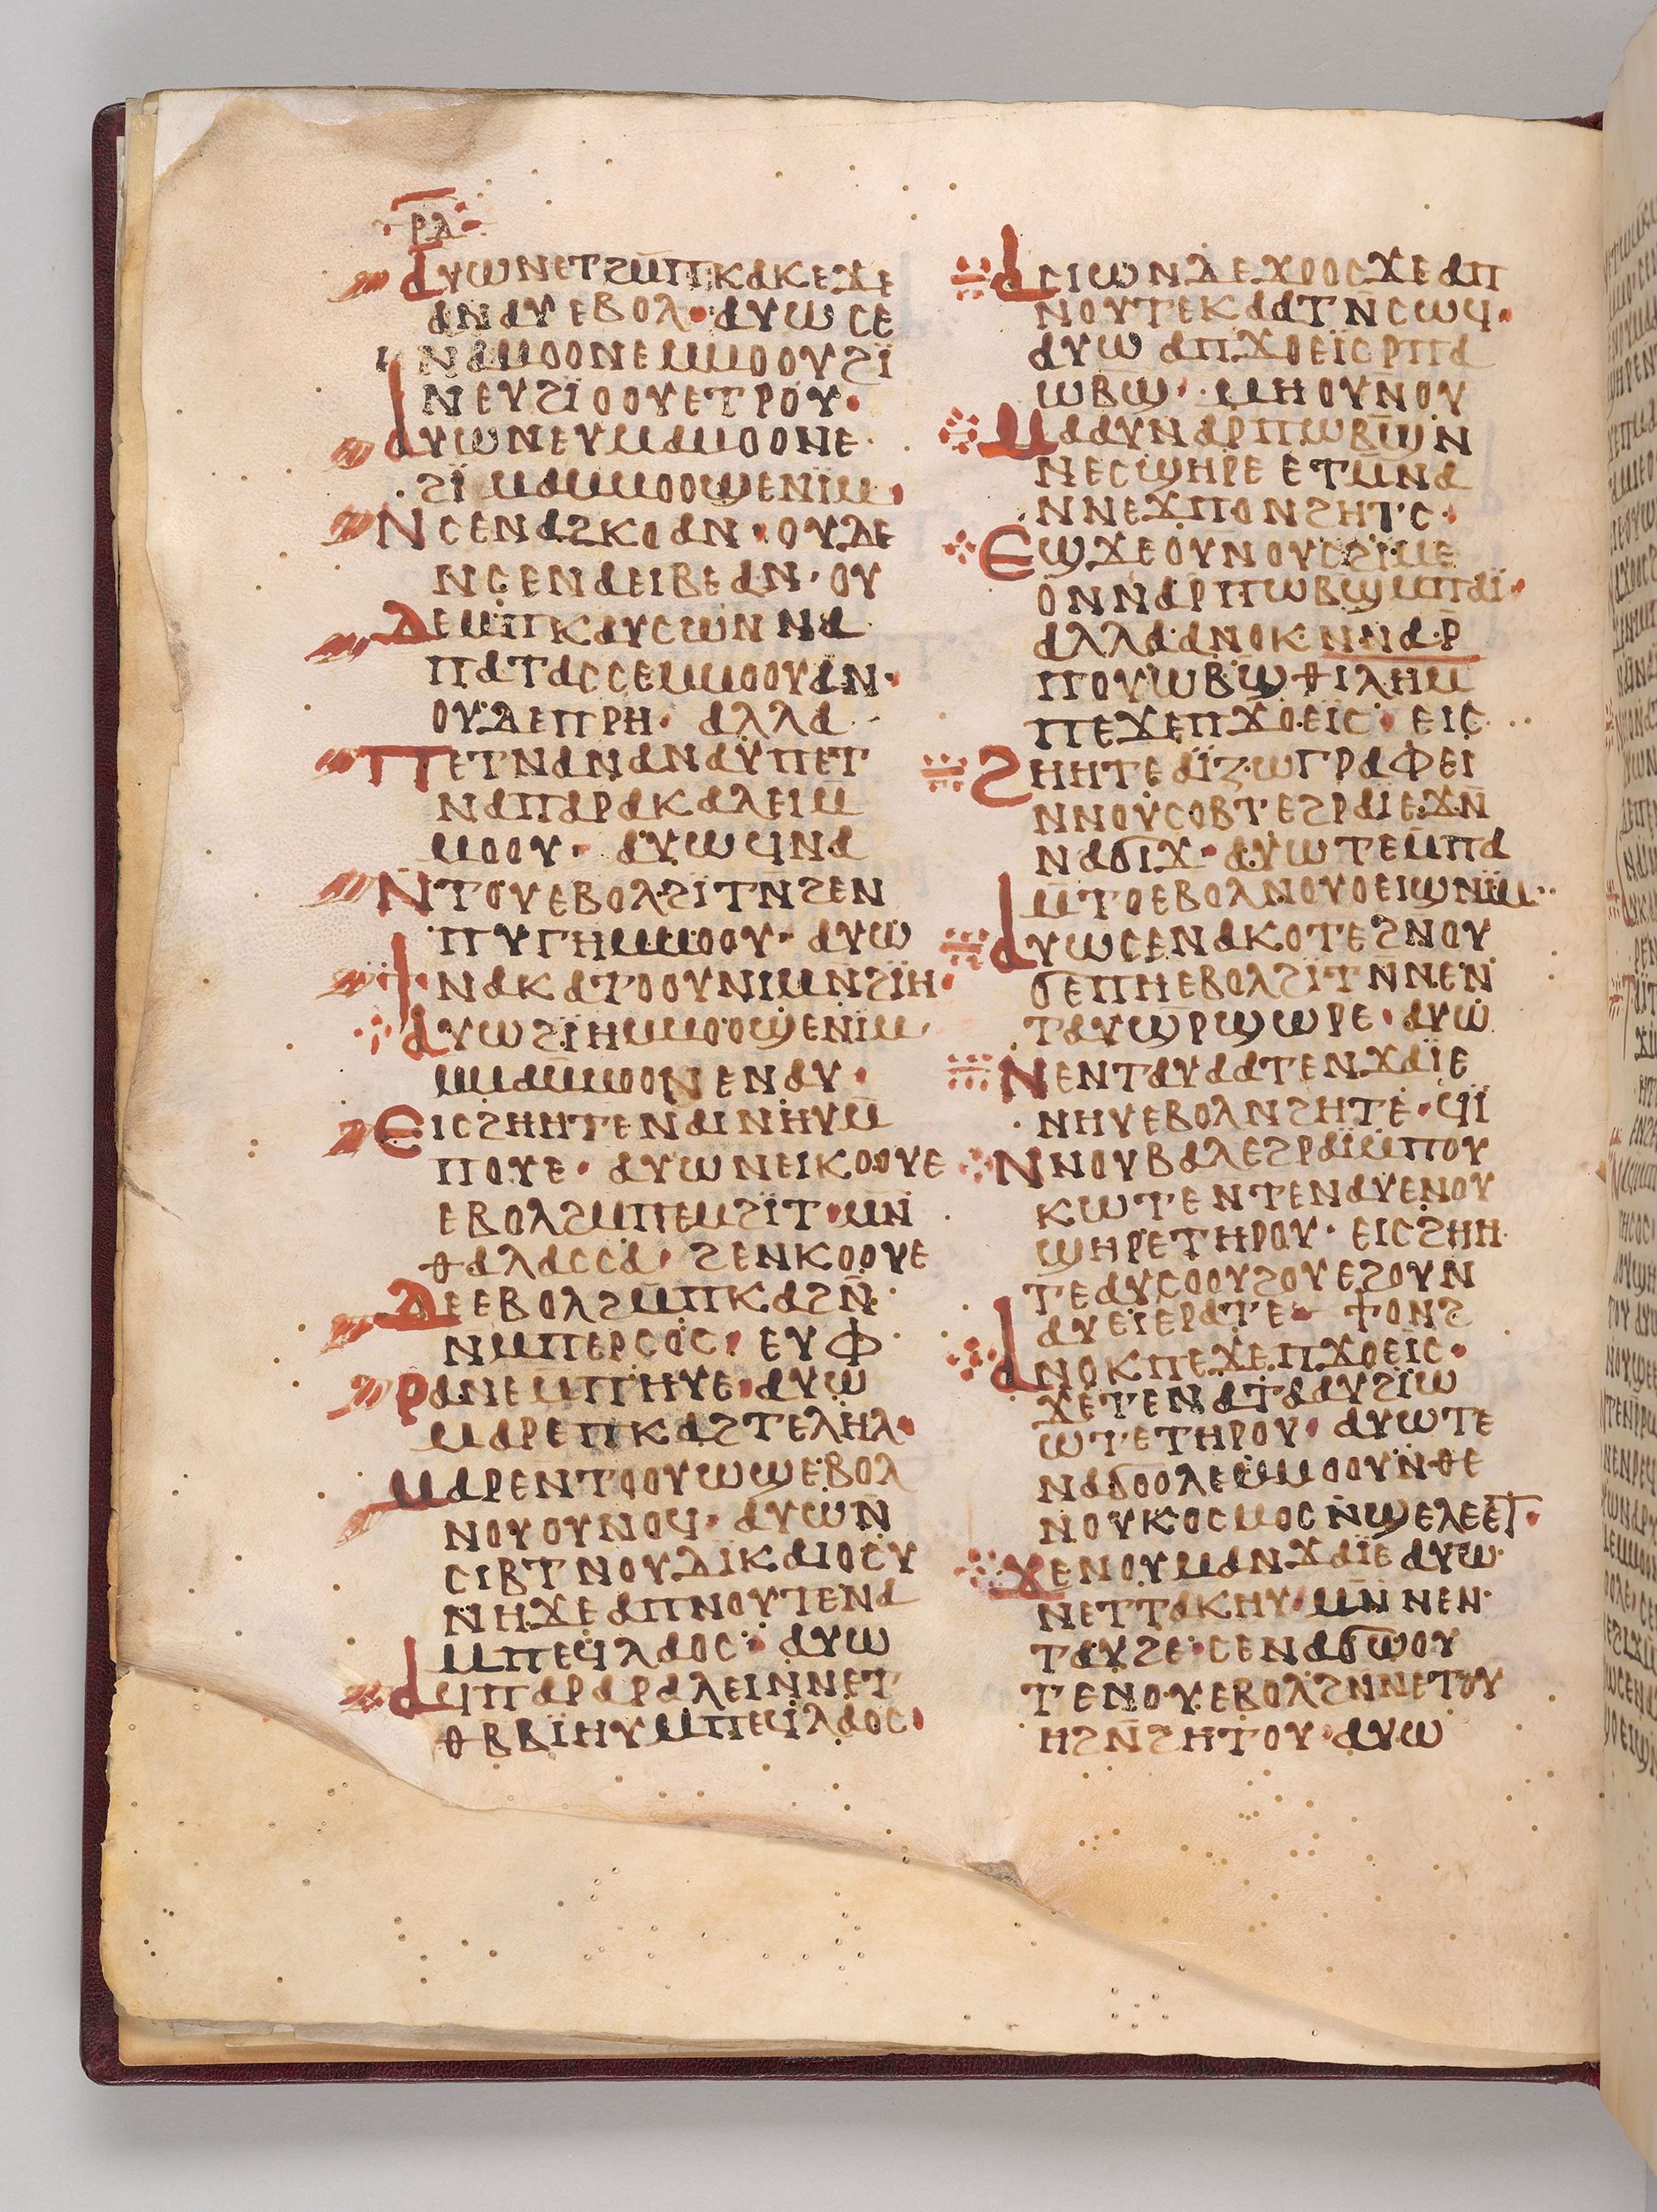 ⲣⲁ
ⲁⲩⲱⲛⲉⲧϩⲙ̅ⲡⲕⲁⲕⲉϫⲉ
ⲁⲛⲁⲩⲉⲃⲟⲗ· ⲁⲩⲱⲥⲉ
ⲛⲁⲙⲟⲟⲛⲉⲙⲙⲟⲟⲩϩⲓ̈
ⲛⲉⲩϩⲓ̈ⲟⲟⲩⲉⲧⲣⲟⲩ·
ⲁⲩⲱⲛⲉⲩⲙⲁⲙⲟⲟⲛⲉ·
ϩⲓ̈ⲙⲁⲙⲙⲟⲟϣⲉⲛⲓ̈ⲙ·
ⲛⲥⲉⲛⲁϩⲕⲟⲁⲛ· ⲟⲩⲇⲉ
ⲛⲥⲉⲛⲁⲉⲓⲃⲉⲁⲛ· ⲟⲩ
ⲇⲉⲙ̅ⲡⲕⲁⲩⲥⲱⲛⲛⲁ
ⲡⲁⲧⲁⲥⲥⲉⲙⲙⲟⲟⲩⲁⲛ·
ⲟⲩⲇⲉⲡⲣⲏ· ⲁⲗⲗⲁ
ⲡⲉⲧⲛⲁⲛⲁⲛⲁⲩⲡⲉⲧ
ⲛⲁⲡⲁⲣⲁⲕⲁⲗⲉⲓⲙ
ⲙⲟⲟⲩ· ⲁⲩⲱϥⲛⲁ
ⲛⲧⲟⲩⲉⲃⲟⲗϩⲓ̈ⲧⲛϩⲉⲛ
ⲡⲩⲅⲏⲙⲙⲟⲟⲩ· ⲁⲩⲱ
ϯⲛⲁⲕⲁⲧⲟⲟⲩⲛⲓⲙⲛϩⲓ̈ⲏ·
ⲁⲩⲱϩⲓ̈ⲏⲙⲙⲟⲟϣⲉⲛⲓⲙ
ⲙⲙⲁⲙⲙⲟⲟⲛⲉⲛⲁⲩ·
ⲉⲓⲥϩⲏⲏⲧⲉⲛⲁⲓⲛⲏⲩⲙ̅
ⲡⲟⲩⲉ· ⲁⲩⲱⲛⲉⲓⲕⲟⲟⲩⲉ
ⲉⲃⲟⲗϩⲙⲡⲉⲙϩⲓ̈ⲧ·ⲙⲛ̅
ⲑⲁⲗⲁⲥⲥⲁ· ϩⲉⲛⲕⲟⲟⲩⲉ
ⲇⲉⲉⲃⲟⲗϩⲙ̅ⲡⲕⲁϩⲛ̅
ⲛⲙⲡⲉⲣⲥⲟⲥ· ⲉⲩⲫ
ⲣⲁⲛⲉⲙⲡⲏⲩⲉ·ⲁⲩⲱ
ⲙⲁⲣⲉⲡⲕⲁϩⲧⲉⲗⲏⲗ·
ⲙⲁⲣⲉⲛⲧⲟⲟⲩⲱϣⲉⲃⲟⲗ
ⲛⲟⲩⲟⲩⲛⲟϥ· ⲁⲩⲱⲛ̅
ⲥⲓⲃⲧⲛⲟⲩⲇⲓⲕⲁⲓⲟⲥⲩ
ⲛⲏϫⲉⲁⲡⲛⲟⲩⲧⲉⲛⲁ
ⲙⲡⲉϥⲗⲁⲟⲥ· ⲁⲩⲱ
ⲁϥⲡⲁⲣⲁⲣⲁⲗⲉⲓⲛⲛⲉⲧ
ⲑⲃⲃⲓ̈ⲏⲩⲙⲡⲉϥⲗⲁⲟⲥ·
ⲁⲥⲓⲱⲛⲇⲉϫⲟⲟⲥϫⲉⲁⲡ
ⲛⲟⲩⲧⲉⲕⲁⲁⲧⲛ̅ⲥⲱϥ·
ⲁⲩⲱⲁⲡϫⲟⲉⲓ̈ⲥⲣⲡⲁ
ⲱⲃϣ· ⲙⲏⲟⲩⲛⲟⲩ
ⲙⲁⲁⲩⲛⲁⲣⲡⲱⲃϣ̅ⲛ
ⲛⲉⲥϣⲏⲣⲉⲉⲧⲙ̅ⲛⲁ
ⲛⲛⲉϫⲡⲟⲛϩⲏⲧⲥ·
ⲉϣϫⲉⲟⲩⲛⲟⲩⲥϩⲓ̈ⲙⲉ
ⲟⲛⲛⲁⲣⲡⲱⲃϣⲙⲡⲁⲓ̈·
ⲁⲗⲗⲁⲁⲛⲟⲕⲛⲛⲁⲣ̅
ⲡⲟⲩⲱⲃϣⲑⲓⲗⲏⲙ
ⲡⲉϫⲉⲡϫⲟⲉⲓ̈ⲥ· ⲉⲓⲥ
ϩⲏⲏⲧⲉⲁⲓ̈ⲍⲱⲅⲣⲁⲫⲉⲓ
ⲛⲛⲟⲩⲥⲟⲃⲧⲉϩⲣⲁⲓ̈ⲉϫⲛ̅
ⲛⲁϭⲓϫ· ⲁⲩⲱⲧⲉⲙ̅ⲡⲁ
ⲙ̅ⲧⲟⲉⲃⲟⲗⲛⲟⲩⲟⲉⲓϣⲛⲓ̈ⲙ··
ⲁⲩⲱⲥⲉⲛⲁⲕⲟⲧⲉϩⲛⲟⲩ
ϭⲉⲡⲏⲉⲃⲟⲗϩⲓ̈ⲧⲛ̅ⲛⲉⲛ
ⲧⲁⲩϣⲣϣⲱⲣⲉ· ⲁⲩⲱ
ⲛⲉⲛⲧⲁⲩⲁⲁⲧⲉⲛϫⲁⲓ̈ⲉ
ⲛⲏⲩⲉⲃⲟⲗⲛϩⲏⲧⲉ·ϥⲓ̈
ⲛⲛⲟⲩⲃⲁⲗⲉϩⲣⲁⲓ̈ⲙ̅ⲡⲟⲩ
ⲕⲱⲧⲉⲛⲧⲉⲛⲁⲩⲉⲛⲟⲩ
ϣⲏⲣⲉⲧⲏⲣⲟⲩ· ⲉⲓⲥϩⲏⲏ
ⲧⲉⲁⲩⲥⲟⲟⲩϩⲟⲩⲉϩⲟⲩⲛ
ⲁⲩⲉⲓⲉⲣⲁⲧⲉ· ϯⲟⲛϩ
ⲁⲛⲟⲕⲡⲉϫⲉⲡϫⲟⲉⲓ̈ⲥ·
ϫⲉⲧⲉⲛⲁⲧⲁⲁⲩϩⲓ̈ⲱ
ⲱⲧⲉⲧⲏⲣⲟⲩ· ⲁⲩⲱⲧⲉ
ⲛⲁϭⲟⲟⲗⲉⲙ̅ⲙⲟⲟⲩⲛ̅ⲑⲉ
ⲛⲟⲩⲕⲟⲥⲙⲟⲥⲛ̅ϣⲉⲗⲉⲉⲧ·
ϫⲉⲛⲟⲩⲙⲁⲛϫⲁⲓ̈ⲉⲁⲩⲱ
ⲛⲉⲧⲧⲁⲕⲏⲩ·ⲙⲛ̅ⲛⲉⲛ
ⲧⲁⲩϩⲉ·ⲥⲉⲛⲁϭⲱⲟⲩ
ⲧⲉⲛⲟⲩⲉⲃⲟⲗϩⲛⲛⲉⲧⲟⲩ
ⲏϩⲛ̅ϩⲏⲧⲟⲩ·ⲁⲩⲱ